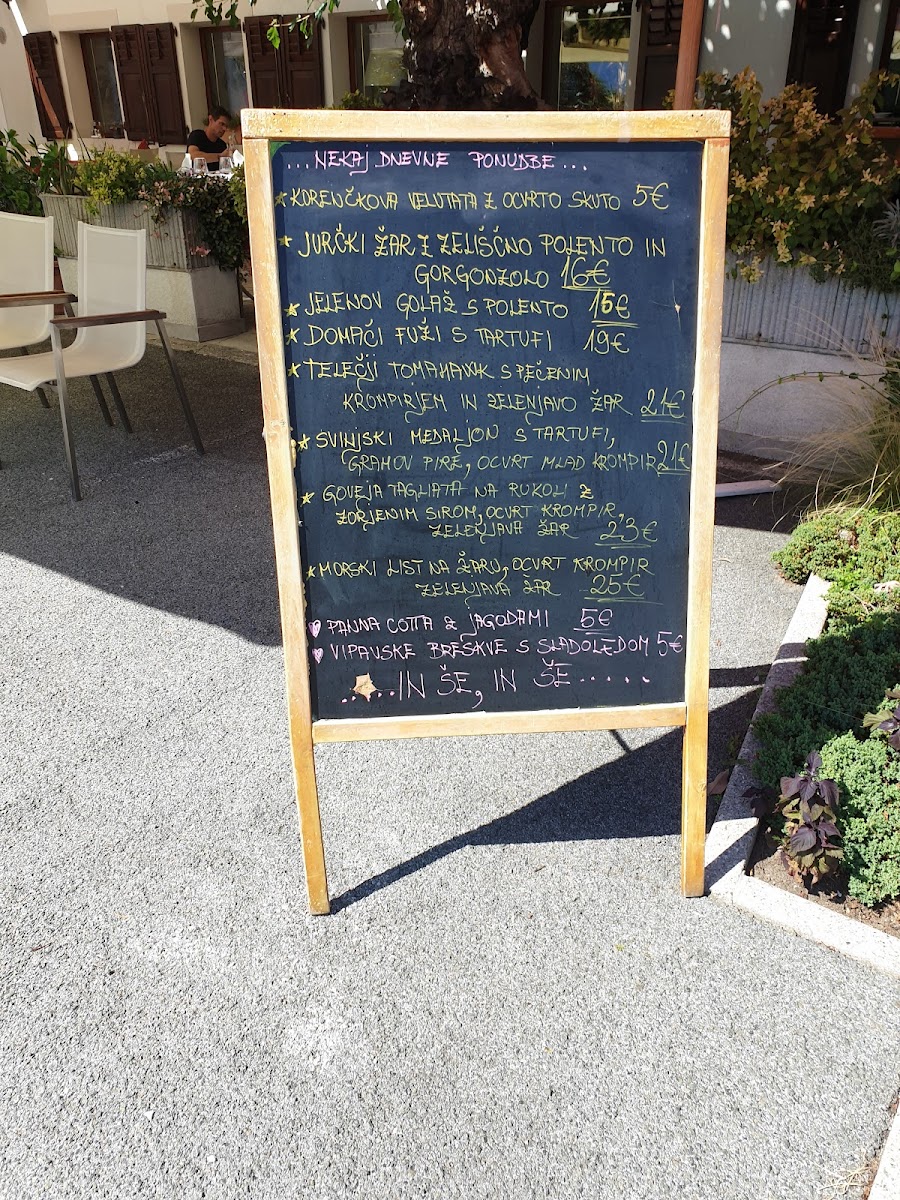 ...NEKAJ DNEVNE PONUDBE...
KORENČKOVA VELUTATA Z OCVRTO SKUTO 5€
JURČKI ŽAR Z ZELIŠČNO POLENTO IN
GORGONZOLO 16€
JELENOV GOLAŽ S POLENTO 15€
DOMAČI FUŽI S TARTUFI 19€
TELEČJI TOMAHAWK S PEČENIM
KROMPIRJEM IN ZELENJAVO ŽAR 21€
SVINJSKI MEDALJON S TARTUFI,
GRAHOV PIRE, OCVRT MLAD KROMPIR 21€
GOVEJA TAGLIATA NA RUKOLI Z
ZORJENIM SIROM, OCVRT KROMPIR,
ZELENJAVA ŽAR 23€
MORSKI LIST NA ŽARU, OCVRT KROMPIR
ZELENJAVA ŽAR 25€
PANNA COTTA Z JAGODAMI 5€
VIPAVSKE BRESKVE S SLADOLEDOM 5€
.....IN ŠE, IN ŠE.....